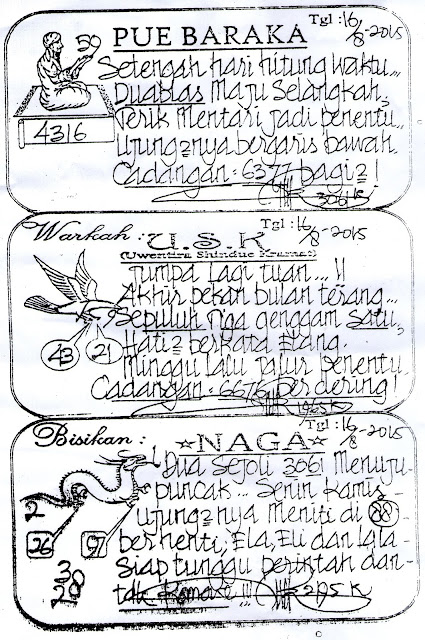 Tgl : 16/8-2015
50
PUE BARAKA
4316
Setengah hari hitung waktu...
Duablas Maju Selangkah,
Terik Mentari jadi penentu,,
Ujung2nya bergaris bawah.
Cadangan : 6377 bagi 2 !
Tgl : 16/8-2015
Warkah : U.S.K
(Uwentira Shindue Kramat)
Jumpa Lagi tuan... !!
Akhir pekan bulan terang...
Sepuluh Tiga genggam satu,
Hati2 berkata Elang.
43 21
Minggu lalu jalur penentu
Cadangan : 6676 berdering !
Tgl : 16/8-2015
Bisikan : NAGA
Dua Sejoli 3061 Menuju-
puncak... Senin Kamis-
ujung2nya Meniti di 88-
2
26 97
berhenti, Ela, Eli dan Lala-
38
Siap tunggu perintah dan-
28
tak